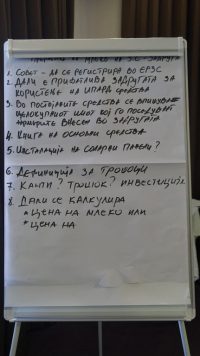 1. Совет - да се регистрира во ЕРЗС
2. Дали е прифатлива задругата за
користење на ИПАРД средства
3. Во постојаните средства се
целокупниот имот кој го поседуваат
внесен во задругата
4. Книга на основни средства
5. Инсталација на соларни панели?
6. Дефиниција за трошоци
7. Капи? Трошок? Инвестиција
8. Дали се калкулира
* Цена на млеко или
* Цена на